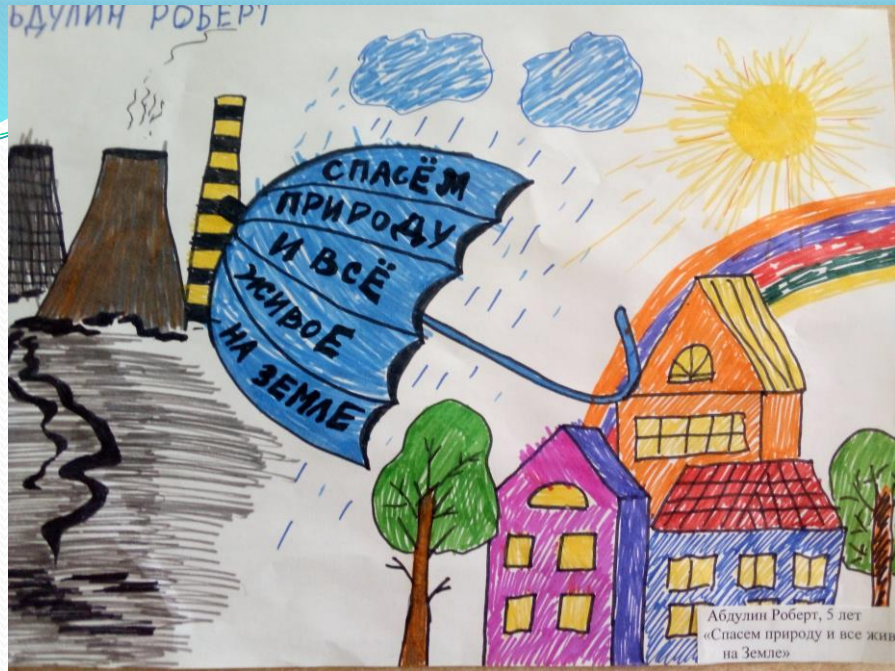 ЬДУЛИН РОБЕРТ
СПАСЁМ
ПРИРОДУ
И ВСЁ
ЖИВОЕ
НА ЗЕМЛЕ
Абдулин Роберт, 5 лет
«Спасем природу и все жив
на Земле»